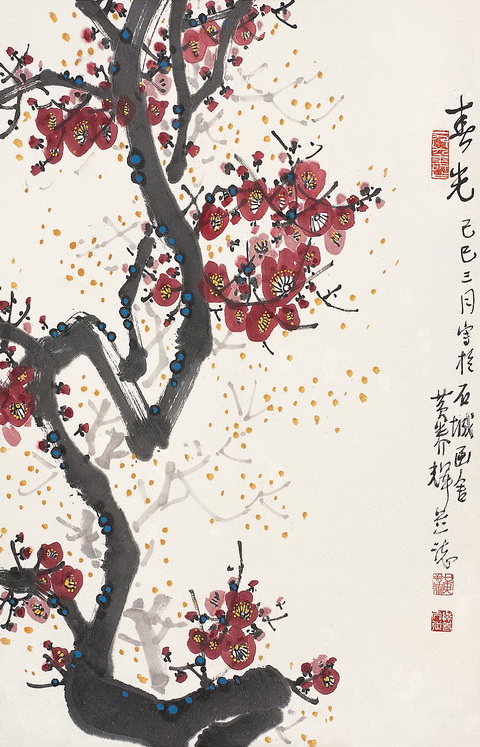 春光
己巳三月写于石城画舍
黄养辉并志